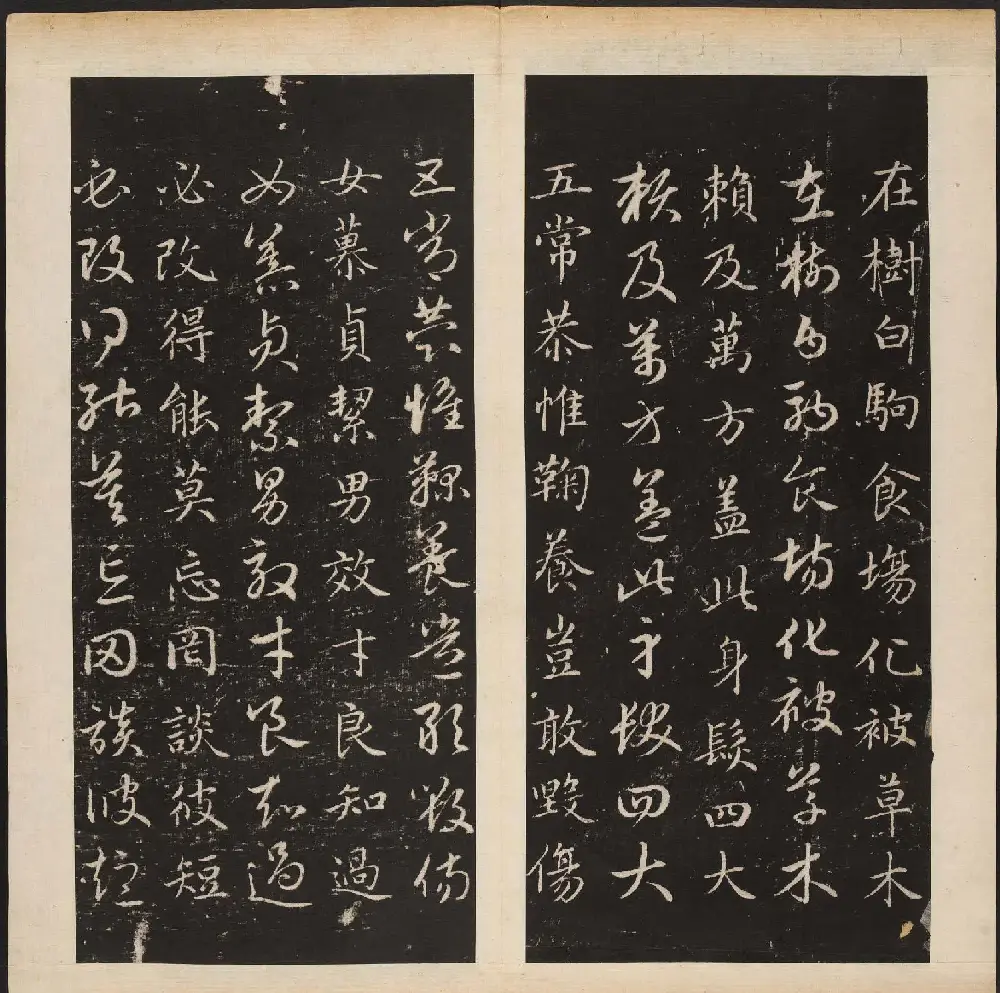 在樹白駒食塲化被草木
在樹白駒食場化被草木
賴及萬方盖此身髮四大
賴及萬方盖此身髮四大
五常恭惟鞠養豈敢毀傷
五常恭惟鞠養豈敢毀傷
女慕貞絜男效才良知過
女慕貞絜男效才良知過
必改得能莫忘罔談彼短
必改得能莫忘罔談彼短